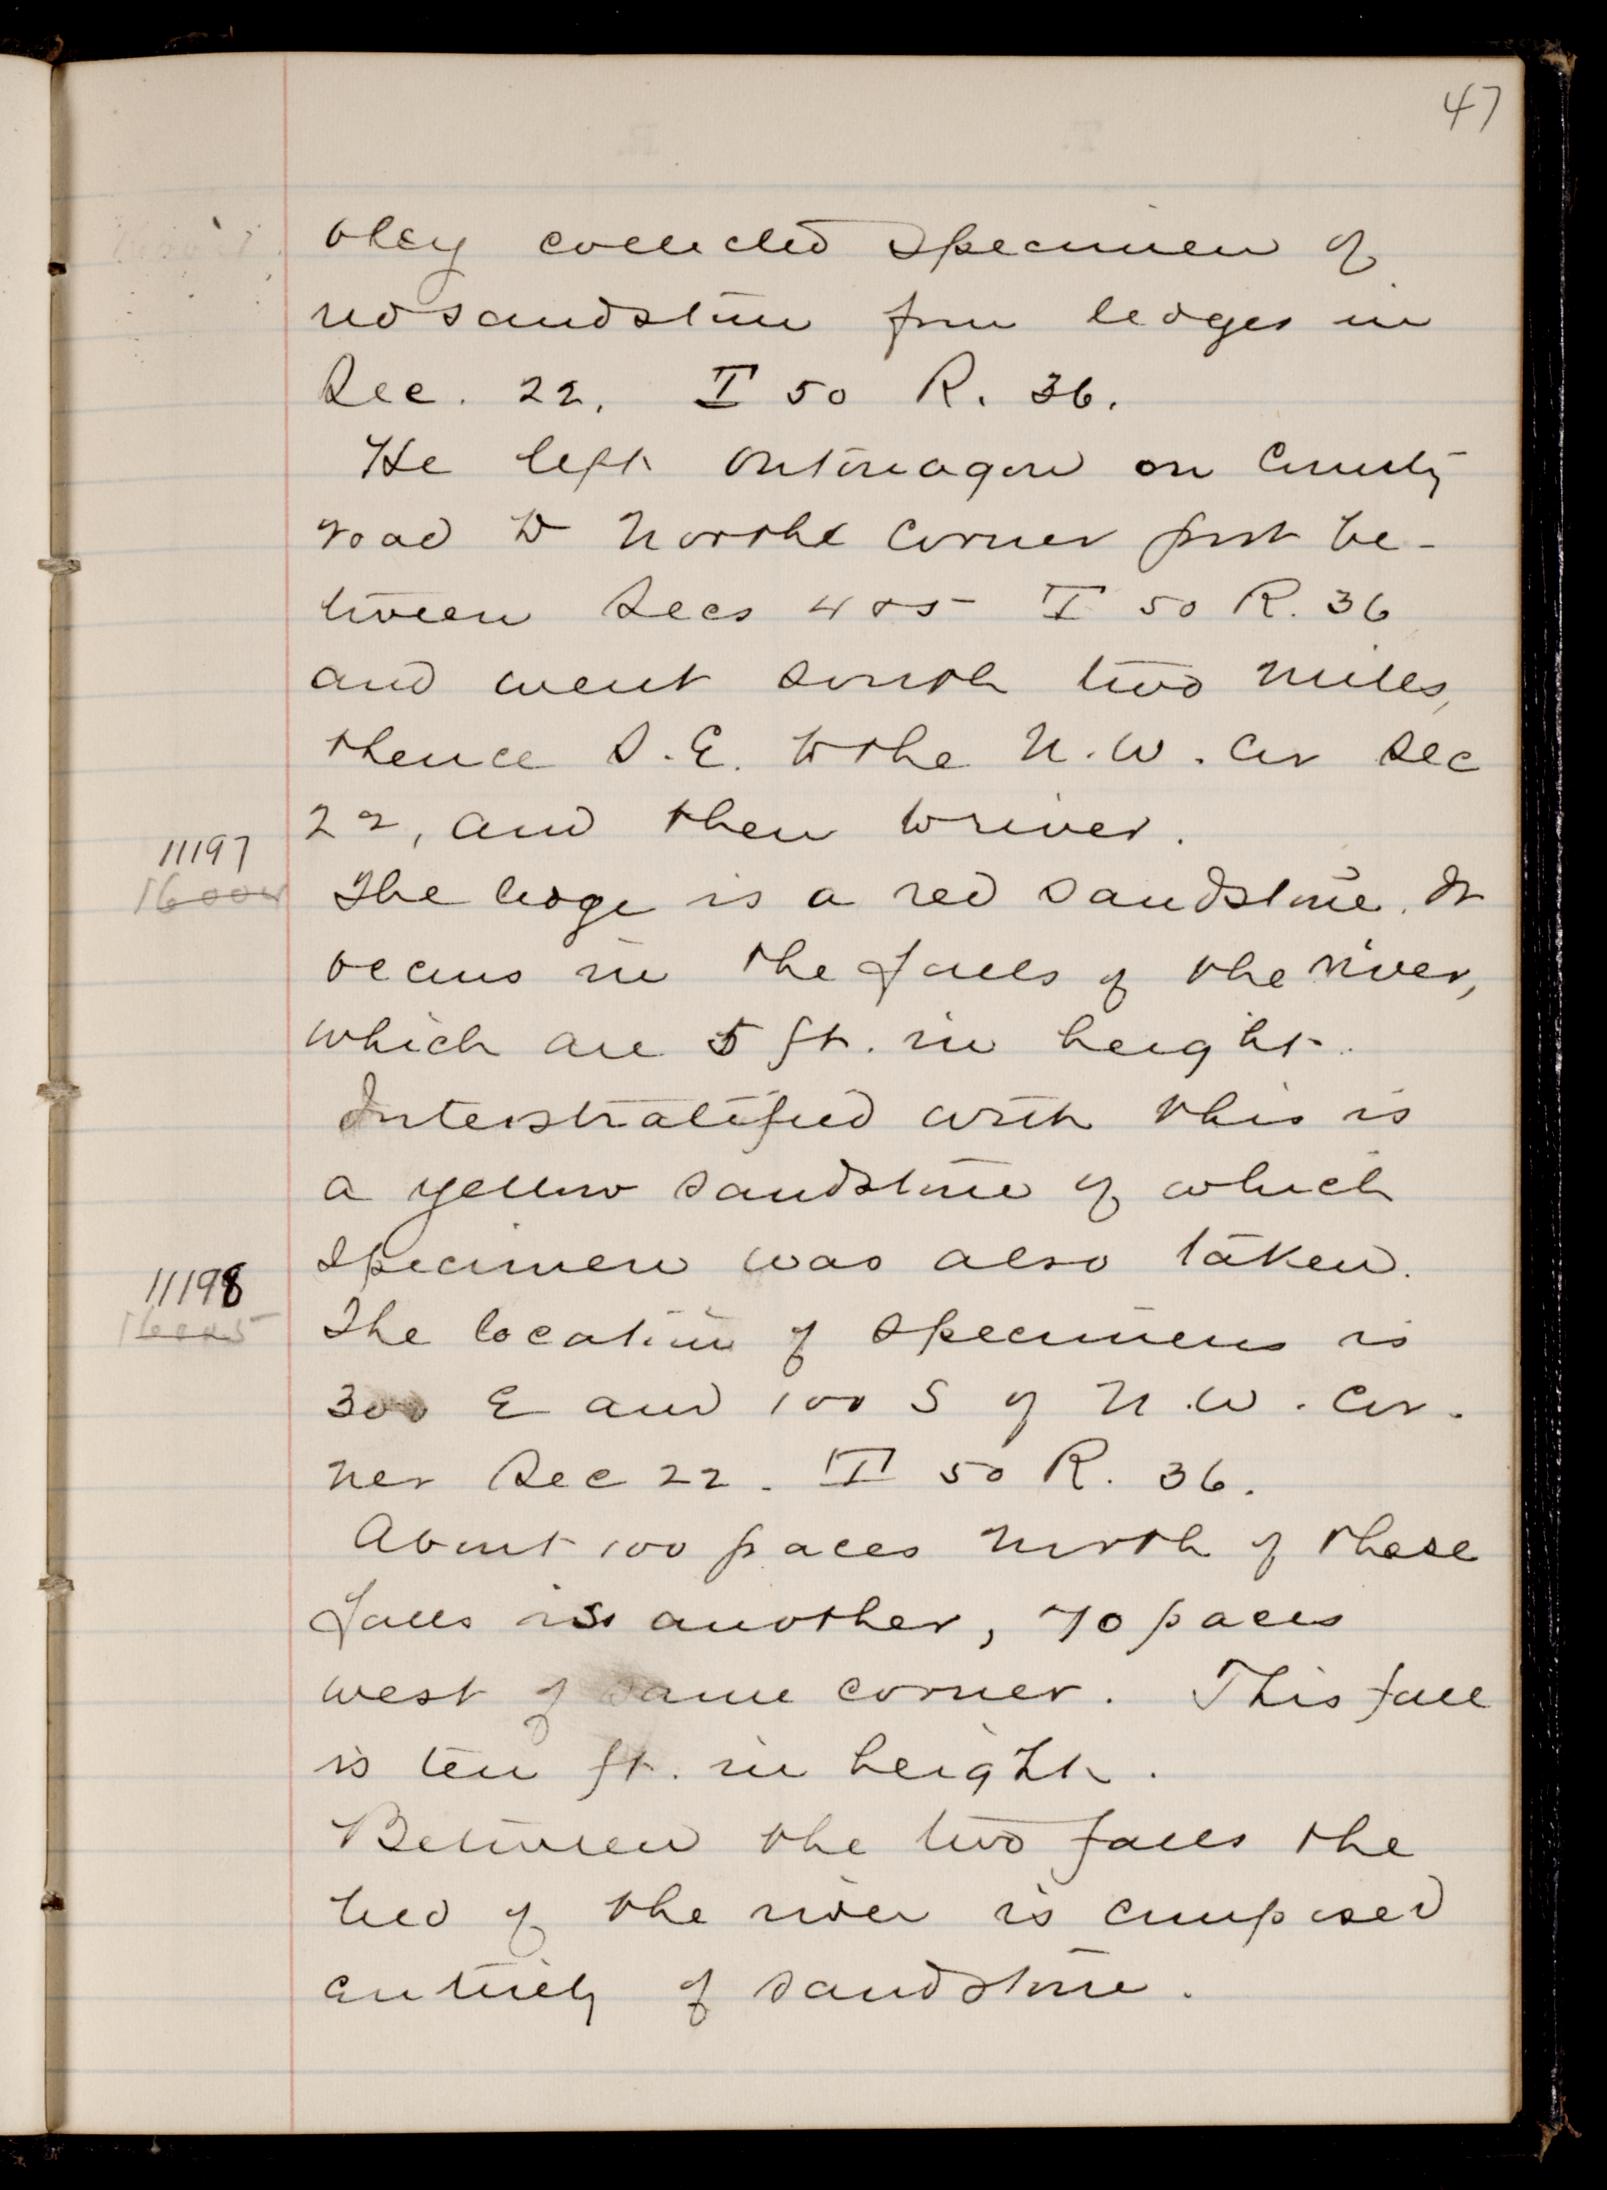 47
obey collected specimen of
red sandstone from ledges in
Sec. 22, T 50 R. 36.
He left Ontonagon on County
road to North corner post be-
tween Secs 4 & 5 T 50 R. 36
and went south two miles,
thence S.E. to the N.W. cor Sec
22, and then to river.
11197
The ledge is a red sandstone. It
16004
occurs in the falls of the river,
which are 5 ft. in height.
Interstratified with this is
a yellow sandstone of which
specimen was also taken.
11198
The location of specimens is
16005
300 E and 100 S of N.W. Cor-
ner Sec 22. T 50 R. 36.
About 100 paces north of these
falls is another, 70 paces
west of same corner. This fall
is ten ft. in height.
Between the two falls the
bed of the river is composed
entirely of sandstone.